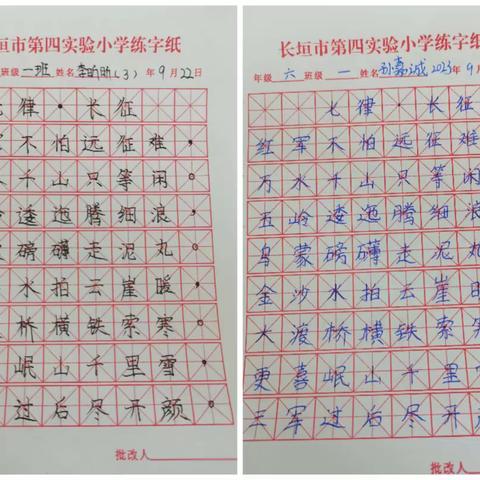 垣市第四实验小学练字纸
班级 一班 姓名 年 9 月 22 日
律 · 长 征
不 怕 远 征 难 ,
千 山 只 等 闲 。
逶 迤 腾 细 浪 ,
磅 礴 走 泥 丸 。
水 拍 云 崖 暖 ,
桥 横 铁 索 寒 。
岷 山 千 里 雪 ,
过 后 尽 开 颜
批改人
长垣市第四实验小学练字纸
年级 六 班级 一 姓名 孙嘉诚 2023年 9 月
七 律 · 长 征
红 军 不 怕 远 征 难
万 水 千 山 只 等 闲
五 岭 逶 迤 腾 细 浪
乌 蒙 磅 礴 走 泥 丸
金 沙 水 拍 云 崖 暖
大 渡 桥 横 铁 索 寒
更 喜 岷 山 千 里
三 军 过 后 尽 开 颜
批改人